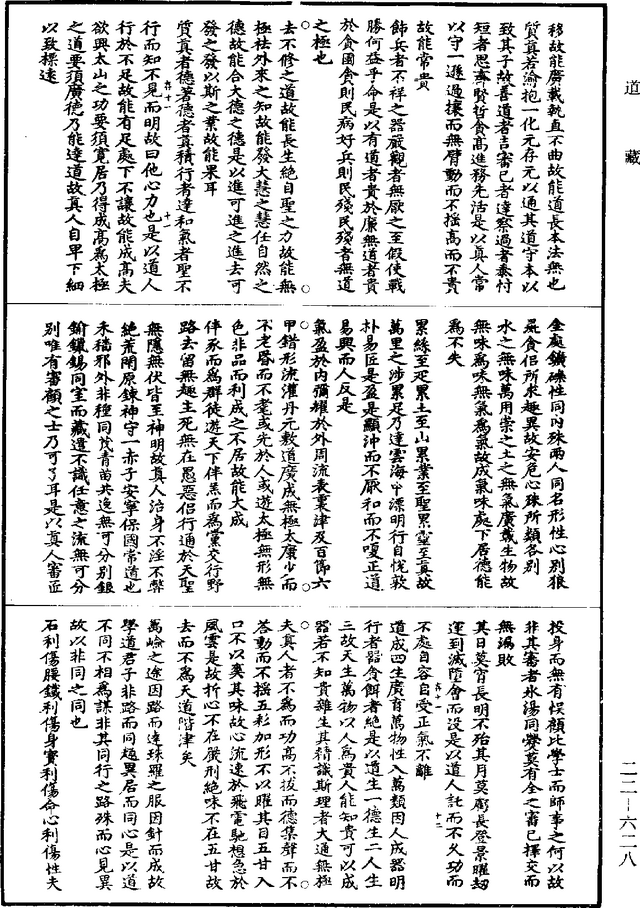 道藏
移故能廣載執直不曲故能道長本法無也
質真若渝抱一化元存元以通其道守本以
致其子故善道者言審已者達察過者黍忖
短者思齊賢哲食高進務先活是以真人常
以守一遜過攘而無臂動而不搖高而不貴
故能常貴
飾兵者不祥之器嚴觀者無厭之至假使戰
勝何益乎命是以有道者貴於廉無道者貴
於貪國貪則民病好兵則民殘民殘者無道
之極也
去不修之道故能長生絕自聖之力故能無
極祛外來之知故能發大慧之慧任自然之
德故能合大德之德是以進可進之進去可
發之發以斯之業故能果耳
質真者德著德者真積行者達和氣者聖不
弃十一 十一
行而知不見而明故曰他心力也是以道人
行於不足故能有足處下不讓故能成高夫
欲興太山之功要須寬居乃得成高為太極
之道要須廣德乃能達道故真人自卑下細
以致標遠
金處鑛礫性同內殊兩人同名形性心別狼
羆食侶所求趣異故安危心殊所類各別
水之無味萬用崇之土之無氣廣載生物故
無味為味無氣為氣故成氣味處下居德能
為不失
累絲至疋累土至山累業至聖累靈至真故
萬里之涉累足乃達雲海中漂明行自忱敦
朴易匠是盈是顯沖而不厭和而不嗄正道
易興而人反是
氣盈於內彌耀於外周流表裏津及百節六
甲錯形流灌丹元敷道廣成無極太康少而
不老昬而不耄或先於人或遊太極無形無
色非品而利成之不居故能大成
伴豕而為群徒遊天下伴羔而為黨交行野
路去留無趣生死無在愚惡侶行通於天聖
無隱無伏皆至神明故真人治身不淫不弊
絕荒閉原鍊神守一赤子安寧保國常道也
禾稻邪外非種同茂青苗共逸無可分別銀
鍮鑞錫同室而藏還不識任意之流無可分
別唯有審顧之士乃可了耳是以真人審匠
投身而無有悞顧比學士而師事之何以故
非其審者氷湯同爨莫有全之審已擇交而
無漏敗
其日莫宵長明不殆其月莫虧長登景曜劫
運到滅墮會而沒是以道人託而不久功而
弃十一 十二
不處自容自受正氣不離
道成四生廣育萬物性入萬類因人成器明
行者器食餌者絕是以道生一德生二人生
三故天生萬物以人為貴人能知貴可以成
器若不知貴雜生其精識斯理者大通無極
夫真人者不為而功高不拔而德集聲而不
荅動而不搖五彩加形不以曜其目五甘入
口不以爽其味故心流速於飛電馳想急於
風雲是故折心不在嚴刑絕味不在五甘故
去而不為天道階津矣
萬崄之途因路而達殊羅之服因針而成故
學道君子非路而同趣異居而同心是以道
不同不相為謀非其同行之路殊而心見異
故以非同之同也
石利傷腰鐵利傷身寶利傷命心利傷性夫
二二—六二八